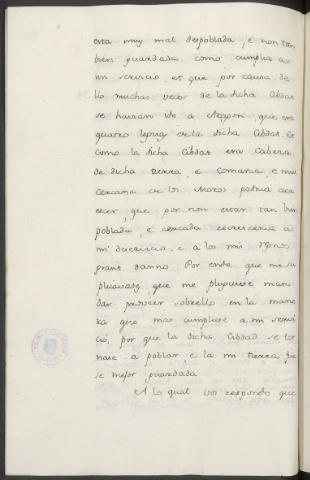 esta muy mal despoblada, e non tan
bien guardada como cumplia a
mi servicio, et que por causa de
llo muchos vecos de la dicha Cibdat
se havian ido a Aragon, que era
quatro leguas de la dicha Cibdat, e
como la dicha Cibdat era Cabeza
de dicha tierra, e Comarca, e muy
cercana de los Moros podria aca
escer, que por non estar tan bien
poblada, e cercada recresceria a
mi deservicio, e a los mis Regnos
grant danno. Por ende que me su
plicavades que me pluguiese man
dar proveer sobrello en la mane
ra que mas cumpliese a mi servi
cio, por que la dicha Cibdad se tor
nase a poblar, e la mi tierra fue
se mejor guardada
A lo qual vos respondo que